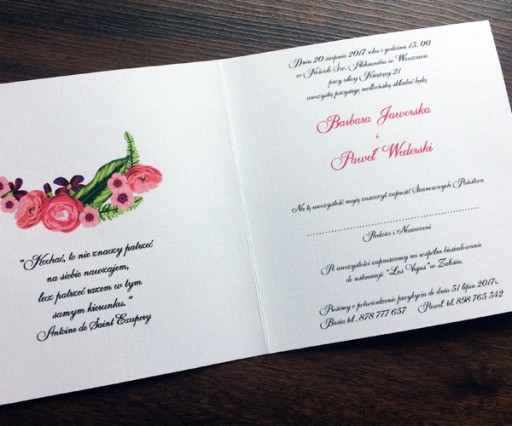 "Kochać, to nie znaczy patrzeć
na siebie nawzajem,
lecz patrzeć razem w tym
samym kierunku."
Antoine de Saint Exupery
Dnia 20 sierpnia 2017 roku o godzinie 15.00
w Kościele Św. Aleksandra w Warszawie
przy ulicy Książęcej 21
uroczystą przysięgę małżeńską składać będą
Barbara Jaworska
i
Paweł Wederski
Na tę uroczystość mają zaszczyt zaprosić Szanownych Państwa
Rodzice i Narzeczeni
Po uroczystości zapraszamy na wspólne biesiadowanie
do restauracji "Las Vegas" w Zalesiu.
Prosimy o potwierdzenie przybycia do dnia 31 lipca 2017r.
Basia tel. 878 777 657 Paweł tel. 898 765 542